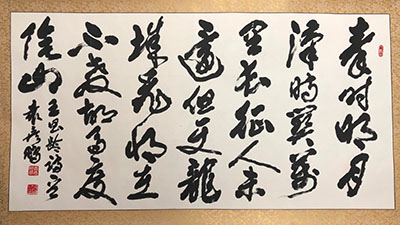 秦时明月
漢時関萬
里長征人未
還但使龍
城飛將在
不教胡馬度
陰山
王昌齡詩